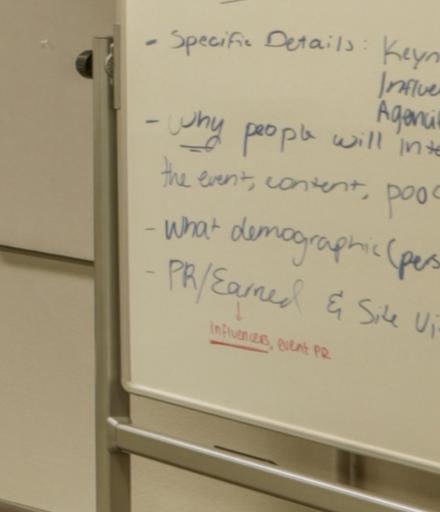 - Specific Details: Keyn
Influe
Agenci
- Why people will inte
the event, content, pood
- What demographic (pers
- PR/Earned & Site Vi
↓
Influencers, event PR